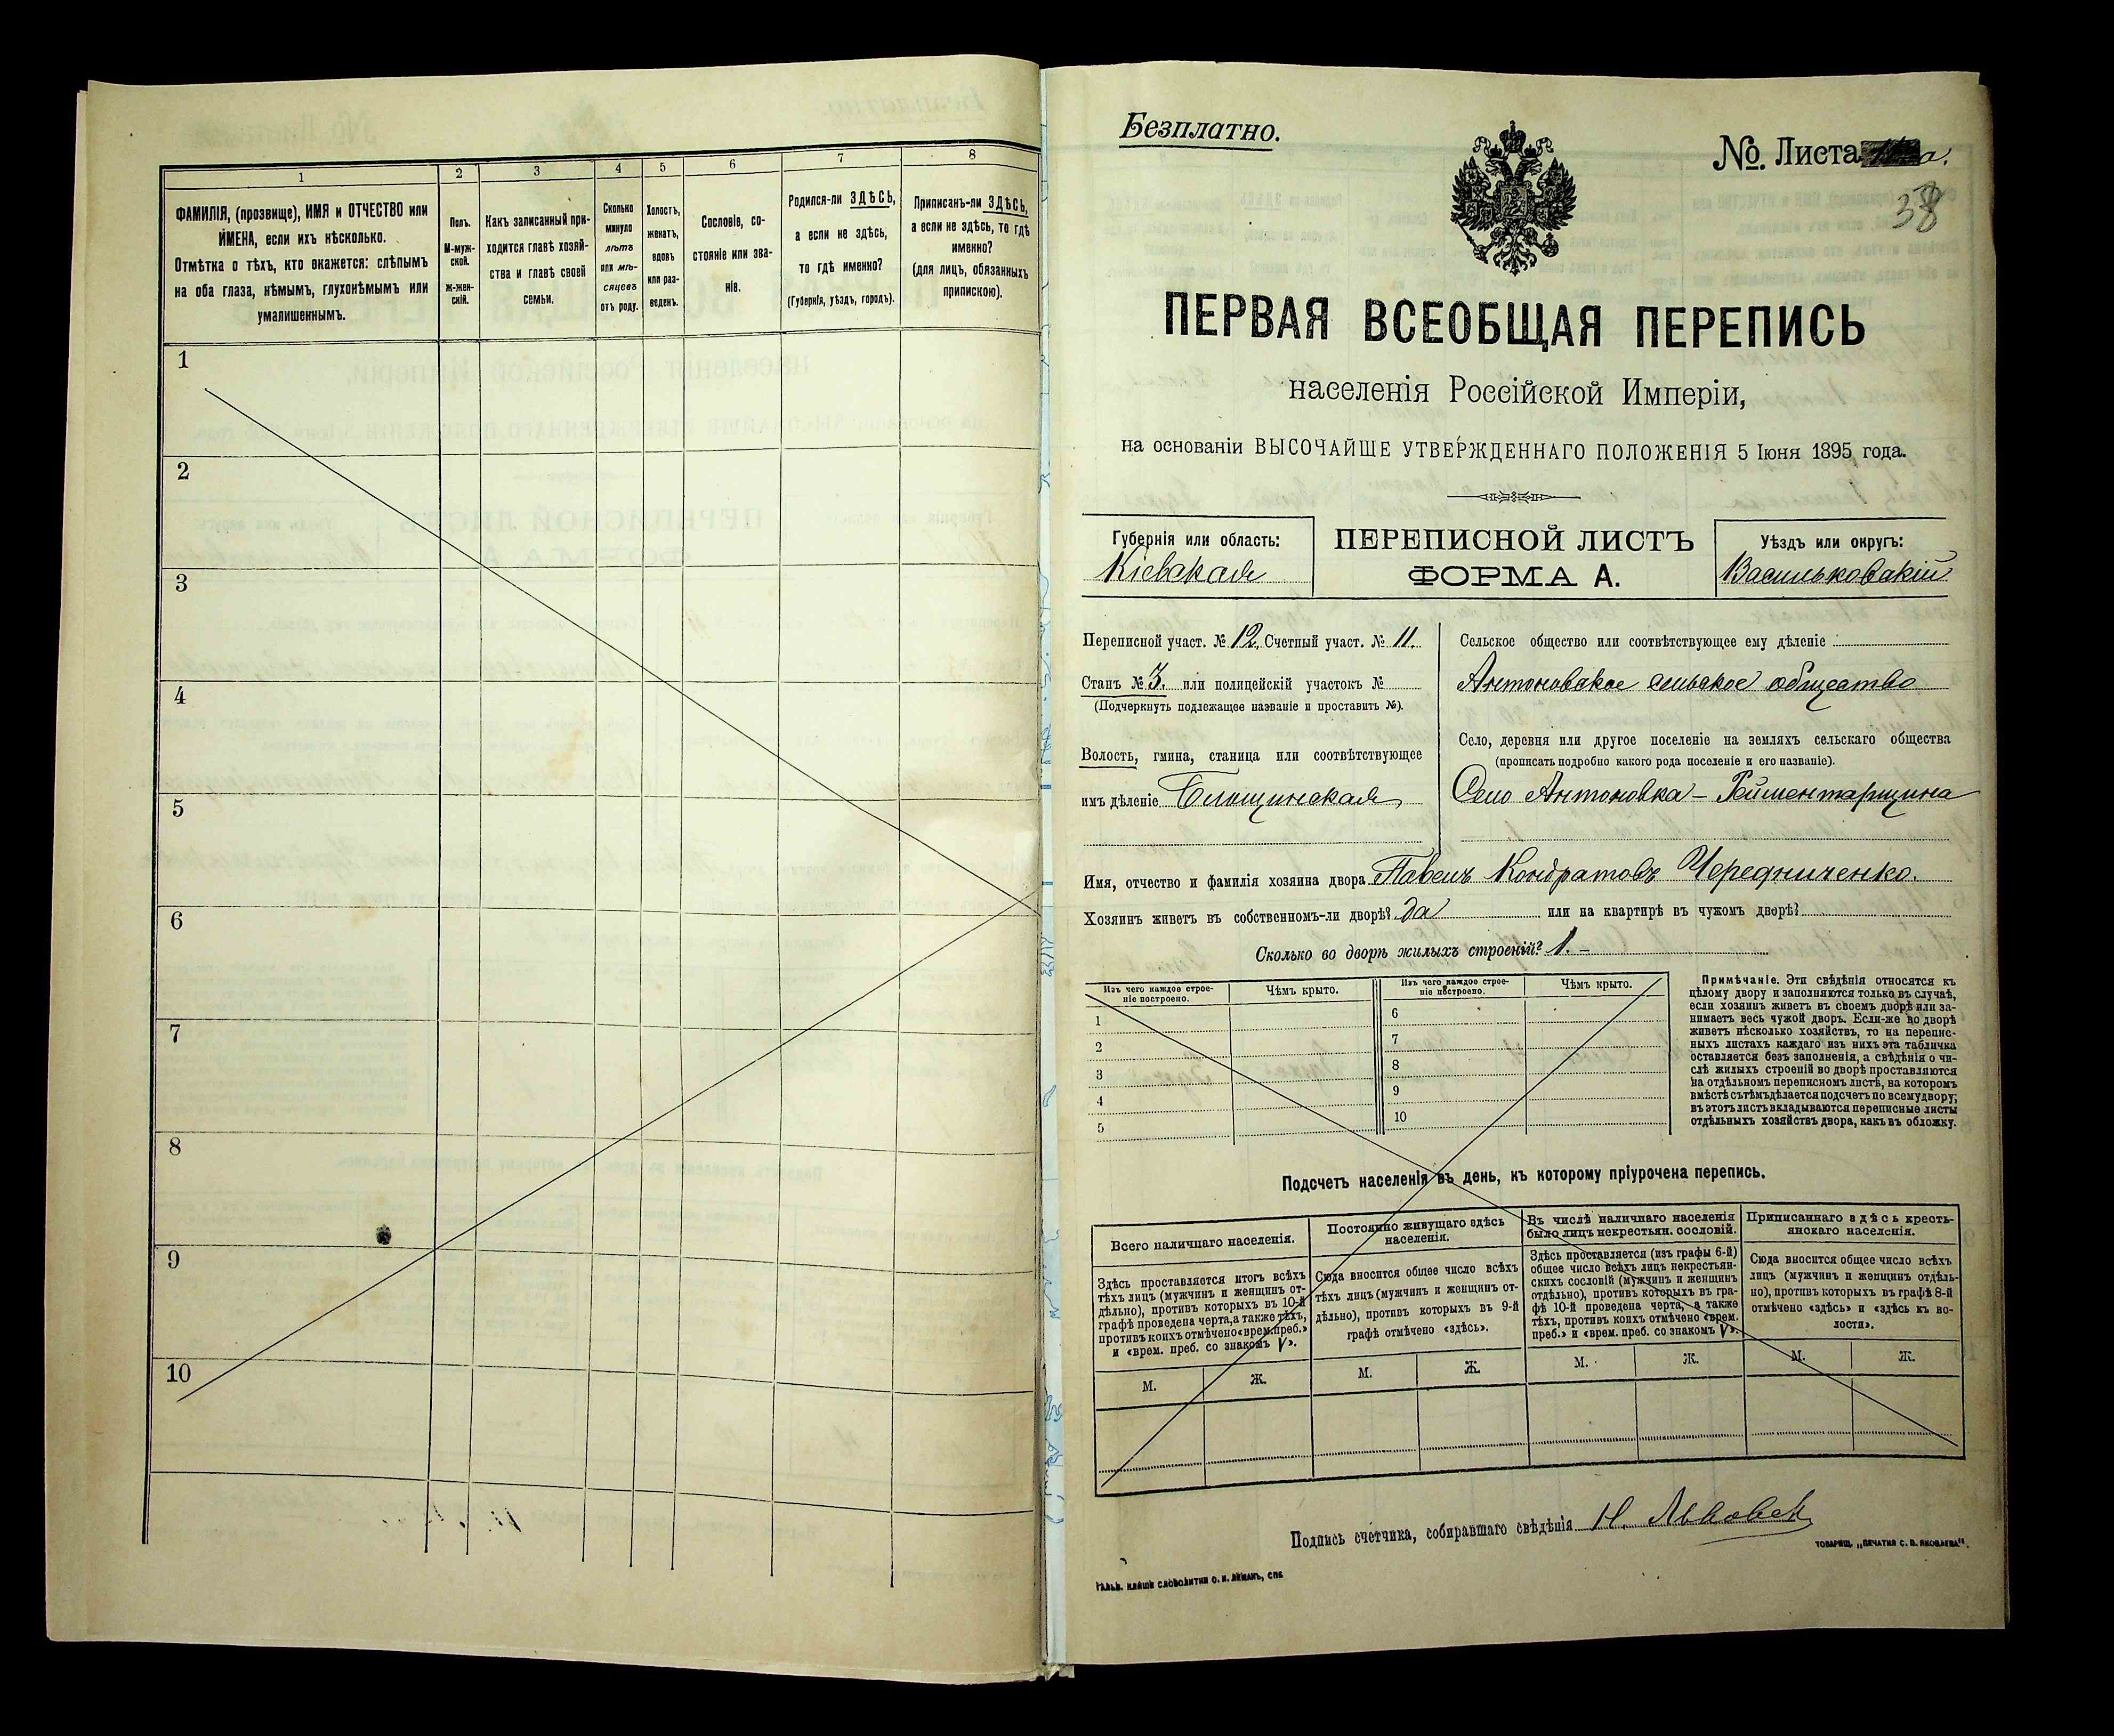 1 2 3 4 5 6 7 8
ФАМИЛІЯ, (прозвище), ИМЯ и ОТЧЕСТВО или
ИМЕНА, если ихъ нѣсколько.
Отмѣтка о тѣхъ, кто окажется: слѣпымъ
на оба глаза, нѣмымъ, глухонѣмымъ или
умалишеннымъ.
Полъ.
М-муж-
ской.
Ж-жен-
скій.
Какъ записанный при-
ходится главѣ хозяй-
ства и главѣ своей
семьи.
Сколько
минуло
лѣтъ
или мѣ-
сяцевъ
отъ роду.
Холостъ,
женатъ,
вдовъ
или раз-
веденъ.
Сословіе, со-
стояніе или зва-
ніе.
Родился-ли ЗДѢСЬ,
а если не здѣсь,
то гдѣ именно?
(Губернія, уѣздъ, городъ).
Приписанъ-ли ЗДѢСЬ,
а если не здѣсь, то гдѣ
именно?
(для лицъ, обязанныхъ
припискою).
1
2
3
4
5
6
7
8
9
10
Безплатно.
№. Листа а.
38
ПЕРВАЯ ВСЕОБЩАЯ ПЕРЕПИСЬ
населенія Россійской Имперіи,
на основаніи ВЫСОЧАЙШЕ УТВЕРЖДЕННАГО ПОЛОЖЕНІЯ 5 Іюня 1895 года.
Губернія или область:
Кіевская
ПЕРЕПИСНОЙ ЛИСТЪ
ФОРМА А.
Уѣздъ или округъ:
Васильковскій
Переписной участ. № 12. Счетный участ. № 11.
Станъ № 3. или полицейскій участокъ №
(Подчеркнуть подлежащее названіе и проставить №).
Волость, гмина, станица или соотвѣтствующее
имъ дѣленіе
Сельское общество или соотвѣтствующее ему дѣленіе
Антоновское сельское общество
Село, деревня или другое поселеніе на земляхъ сельскаго общества
(прописать подробно какого рода поселеніе и его названіе).
Село Антоновка - Рейментарщина
Имя, отчество и фамилія хозяина двора Павелъ Кондратовъ Чередниченко.
Хозяинъ живетъ въ собственномъ-ли дворѣ? да или на квартирѣ въ чужомъ дворѣ?
Сколько во дворѣ жилыхъ строеній? 1. -
Изъ чего каждое строе-
ніе построено.
Чѣмъ крыто.
Изъ чего каждое строе-
ніе построено.
Чѣмъ крыто.
1
2
3
4
5
6
7
8
9
10
Примѣчаніе. Эти свѣдѣнія относятся къ
цѣлому двору и заполняются только въ случаѣ,
если хозяинъ живетъ въ своемъ дворѣ или за-
нимаетъ весь чужой дворъ. Если-же во дворѣ
живетъ нѣсколько хозяйствъ, то на перепис-
ныхъ листахъ каждаго изъ нихъ эта табличка
оставляется безъ заполненія, а свѣдѣнія о чи-
слѣ жилыхъ строеній во дворѣ проставляются
на отдѣльномъ переписномъ листѣ, на которомъ
вмѣстѣ съ тѣмъ дѣлается подсчетъ по всему двору;
въ этотъ листъ вкладываются переписные листы
отдѣльныхъ хозяйствъ двора, какъ въ обложку.
Подсчетъ населенія въ день, къ которому пріурочена перепись.
Всего наличнаго населенія.
Здѣсь проставляется итогъ всѣхъ
тѣхъ лицъ (мужчинъ и женщинъ от-
дѣльно), противъ которыхъ въ 10-й
графѣ проведена черта, а также тѣхъ,
противъ коихъ отмѣчено «врем. преб.»
и «врем. преб. со знакомъ V».
М. Ж.
Постоянно живущаго здѣсь
населенія.
Сюда вносится общее число всѣхъ
тѣхъ лицъ (мужчинъ и женщинъ от-
дѣльно), противъ которыхъ въ 9-й
графѣ отмѣчено «здѣсь».
М. Ж.
Въ числѣ наличнаго населенія
было лицъ некрестьян. сословій.
Здѣсь проставляется (изъ графы 6-й)
общее число всѣхъ лицъ некрестьян-
скихъ сословій (мужчинъ и женщинъ
отдѣльно), противъ которыхъ въ гра-
фѣ 10-й проведена черта, а также
тѣхъ, противъ коихъ отмѣчено «врем.
преб.» и «врем. преб. со знакомъ V».
М. Ж.
Приписаннаго здѣсь кресть-
янскаго населенія.
Сюда вносится общее число всѣхъ
лицъ (мужчинъ и женщинъ отдѣль-
но), противъ которыхъ въ графѣ 8-й
отмѣчено «здѣсь» и «здѣсь къ во-
лости».
М. Ж.
Подпись счетчика, собиравшаго свѣдѣнія Н.
ТОВАРИЩ. „ПЕЧАТНЯ С. П. ЯКОВЛЕВА".
ГАЛЬВ. КЛИШЕ СЛОВОЛИТНИ О. И. ЛЕМАНЪ, СПБ